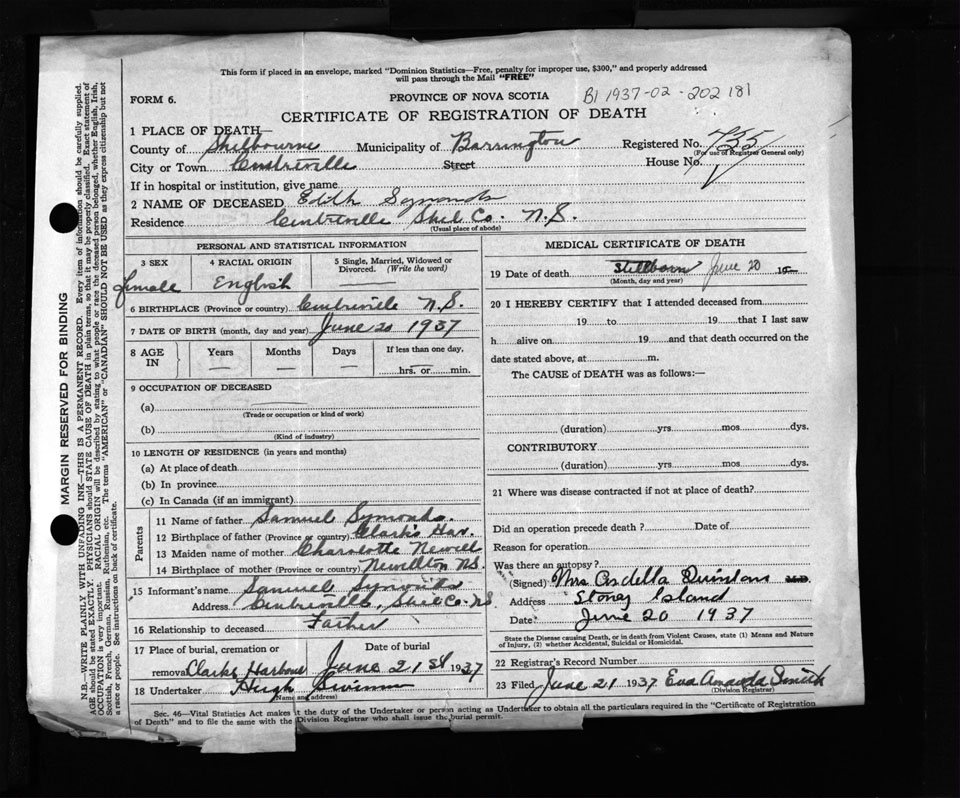 This form if placed in an envelope, marked "Dominion Statistics—Free, penalty for improper use, $300," and properly addressed
will pass through the Mail "FREE"
FORM 6.
PROVINCE OF NOVA SCOTIA
B1 1937-02-202181
CERTIFICATE OF REGISTRATION OF DEATH
1 PLACE OF DEATH—
County of Shelbourne Municipality of Barrington Registered No. 455
(For use of Registrar General only)
City or Town Centreville Street House No.
If in hospital or institution, give name
2 NAME OF DECEASED Edith Symonds
Residence Centreville Shel Co. N.S.
(Usual place of abode)
PERSONAL AND STATISTICAL INFORMATION
3 SEX 4 RACIAL ORIGIN 5 Single, Married, Widowed or
Divorced. (Write the word)
female English
6 BIRTHPLACE (Province or country) Centreville N.S.
7 DATE OF BIRTH (month, day and year) June 20 1937
8 AGE IN Years Months Days If less than one day,
hrs. or min.
9 OCCUPATION OF DECEASED
(a)
(Trade or occupation or kind of work)
(b)
(Kind of industry)
10 LENGTH OF RESIDENCE (in years and months)
(a) At place of death
(b) In province
(c) In Canada (if an immigrant)
Parents
11 Name of father Samuel Symonds.
12 Birthplace of father (Province or country) Clark's Har.
13 Maiden name of mother Charolotte Newell
14 Birthplace of mother (Province or country) Newellton N.S.
15 Informant's name Samuel Symonds
Address Centreville, Shel Co. N.S.
16 Relationship to deceased Father
17 Place of burial, cremation or Date of burial
removal Clarks Harbour June 21st 1937
18 Undertaker Hugh
(Name and address)
MEDICAL CERTIFICATE OF DEATH
19 Date of death Stillborn June 20 19
(Month, day and year)
20 I HEREBY CERTIFY that I attended deceased from
19 to 19 that I last saw
h alive on 19 and that death occurred on the
date stated above, at m.
The CAUSE of DEATH was as follows:—
(duration) yrs. mos. dys.
CONTRIBUTORY
(duration) yrs. mos. dys.
21 Where was disease contracted if not at place of death?
Did an operation precede death? Date of
Reason for operation
Was there an autopsy?
(Signed) Mrs Ardella Quinlan M.D.
Address Stoney Island
Date June 20 1937
State the Disease causing Death, or in death from Violent Causes, state (1) Means and Nature
of Injury, (2) whether Accidental, Suicidal or Homicidal.
22 Registrar's Record Number
23 Filed June 21 1937 Eva Amanda Smith
(Division Registrar)
Sec. 46—Vital Statistics Act makes it the duty of the Undertaker or person acting as Undertaker to obtain all the particulars required in the "Certificate of Registration
of Death" and to file the same with the Division Registrar who shall issue the burial permit.
MARGIN RESERVED FOR BINDING
N.B.—WRITE PLAINLY WITH UNFADING INK—THIS IS A PERMANENT RECORD. Every item of information should be carefully supplied.
AGE should be stated EXACTLY. PHYSICIANS should STATE CAUSE OF DEATH in plain terms, so that it may be properly classified. Exact statement of
OCCUPATION is very important. RACIAL ORIGIN will be described by stating to what people or race the deceased person belonged, whether English, Irish,
Scottish, French, German, Russian, Ruthenian, etc. The terms "AMERICAN" or "CANADIAN" SHOULD NOT BE USED as they express citizenship but not
a race or people. See instructions on back of certificate.